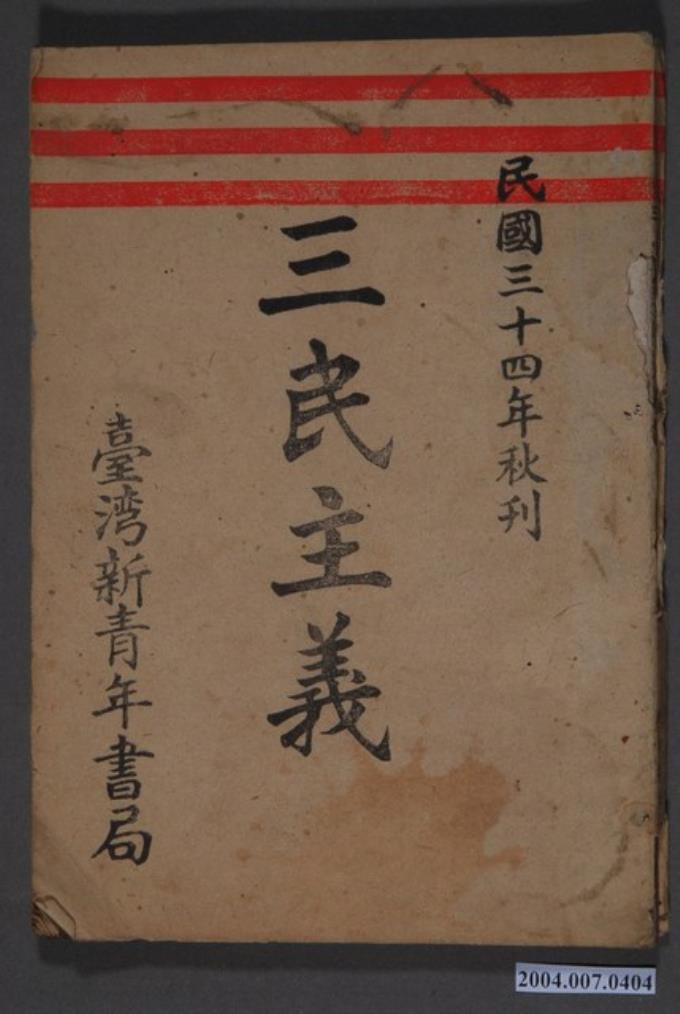 民國三十四年秋刊
三民主義
臺湾新青年書局
2004.007.0404